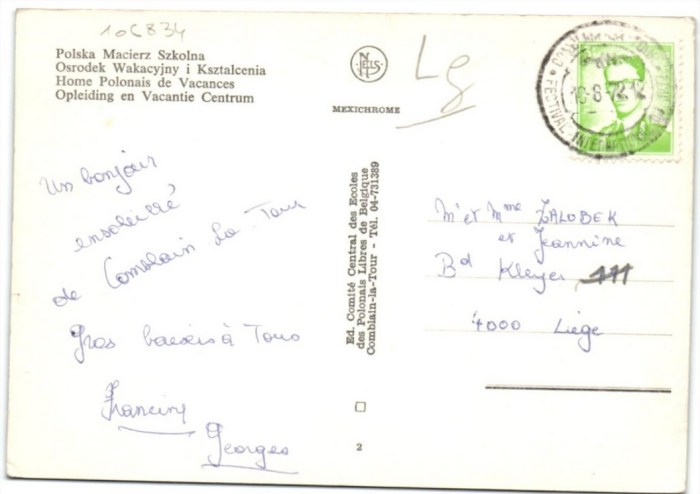 106834
Polska Macierz Szkolna
Osrodek Wakacyjny i Ksztalcenia
Home Polonais de Vacances
Opleiding en Vacantie Centrum
NELS
MEXICHROME
Lg
10-8-72
FESTIVAL INTERNATIONAL
Un bonjour
ensoleillé
de Comblain La Tour
Gros baisers à Tous
Francine
Georges
Ed. Comité Central des Ecoles
des Polonais Libres de Belgique
Comblain-la-Tour - Tél. 04-731389
2
Mr et Mme ZALOBEK
et Jeannine
Bd Kleyer, 111
4000 Liège